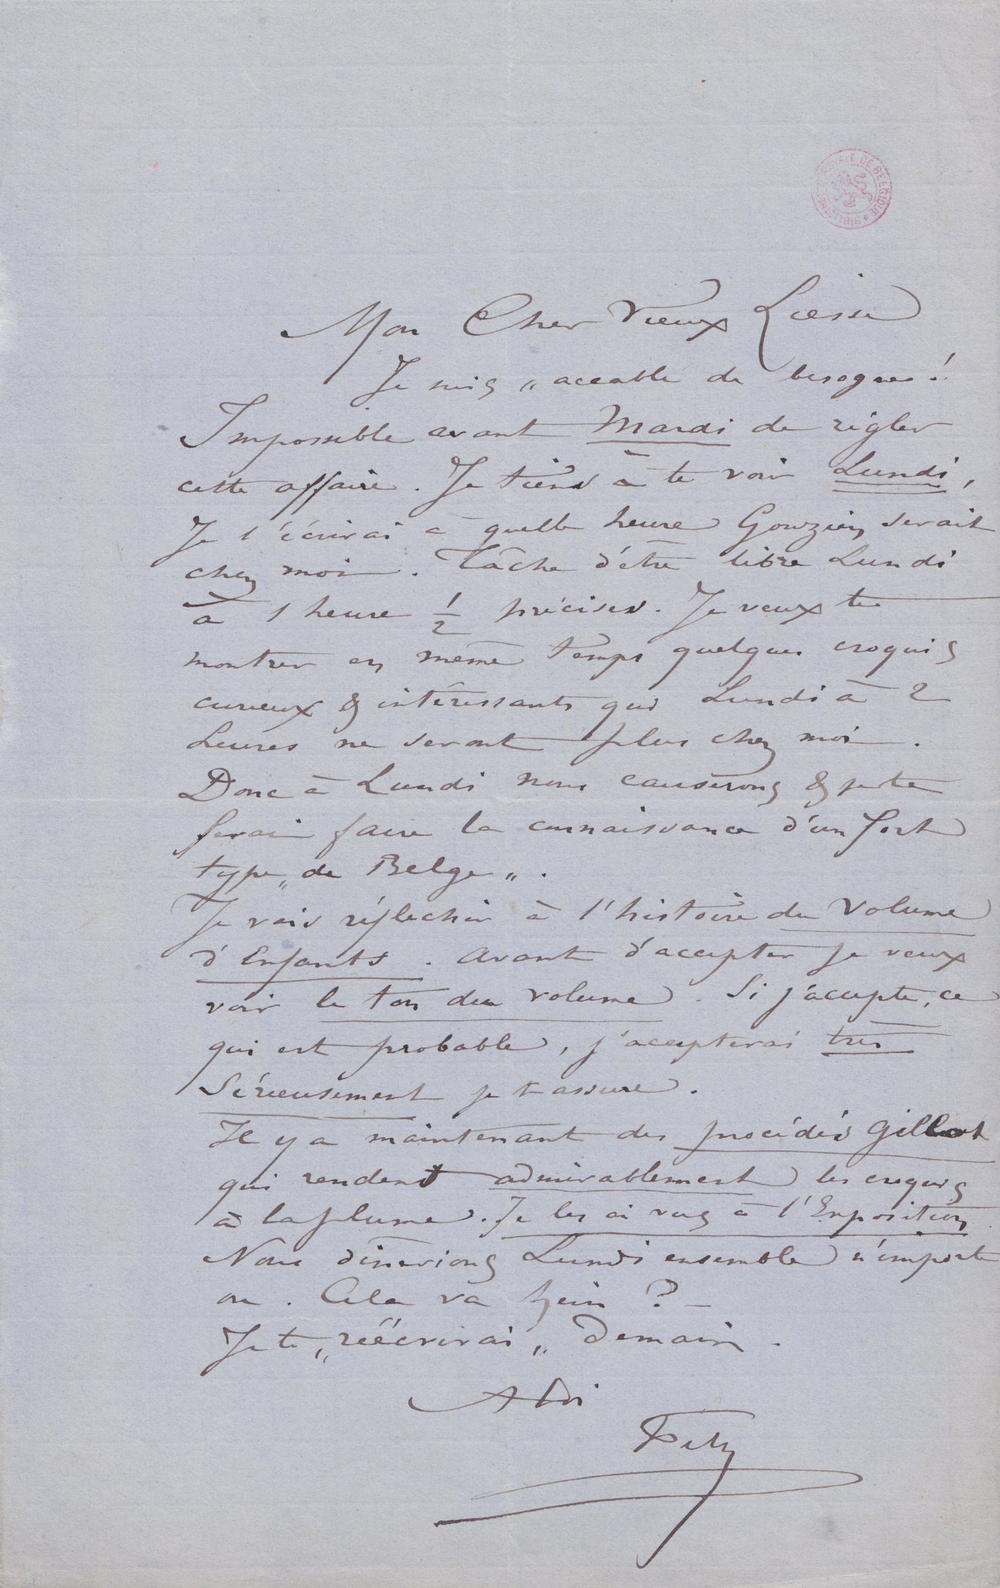 BIBLIOTHEQUE ROYALE DE BELGIQUE
Mon Cher Vieux Liesse
Je suis „ accablé de besogne !
Impossible avant Mardi de règler
cette affaire. Je tiens à te voir Lundi,
Je t'écrirai à quelle heure Gouzien serait
chez moi. Tâche d'être libre Lundi
à 1 heure 1/2 précises. Je veux te
montrer en même temps quelques croquis
curieux & intéressants qui Lundi à 2
heures ne seront plus chez moi.
Donc à Lundi nous causerons & je te
ferai faire la connaissance d'un fort
type „ de Belge „ .
Je vais réflechir à l'histoire du Volume
d'Enfants. Avant d'accepter je veux
voir le ton du volume. Si j'accepte, ce
qui est probable, j'accepterai très
Sérieusement je t'assure.
Il y a maintenant des procédés Gillot
qui rendent admirablement les croquis
à la plume. Je les ai vus à l'Exposition
Nous dinerions Lundi ensemble n'importe
ou. Cela va hein ? —
Je te „ réécrirai „ Demain.
A toi
Fély